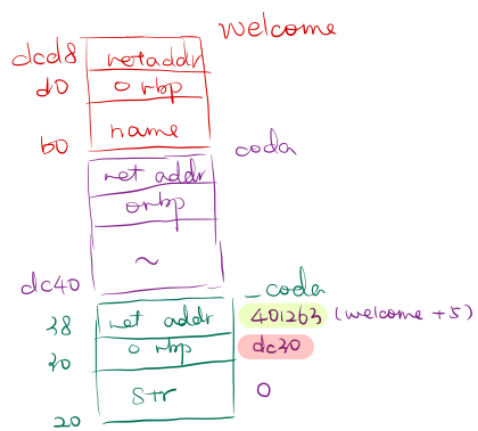 welcome
dcd8 retaddr
d0 o rbp
b0 name
coda
ret addr
orbp
~
dc40
_coda
38 ret addr 401263 (welcome +5)
30 o rbp dc30
str 0
20